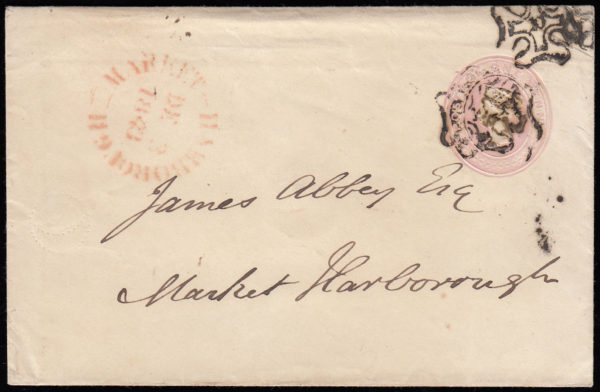 MARKET HARBOROUGH
DE
1843
James Abbey Esq
Market Harborough